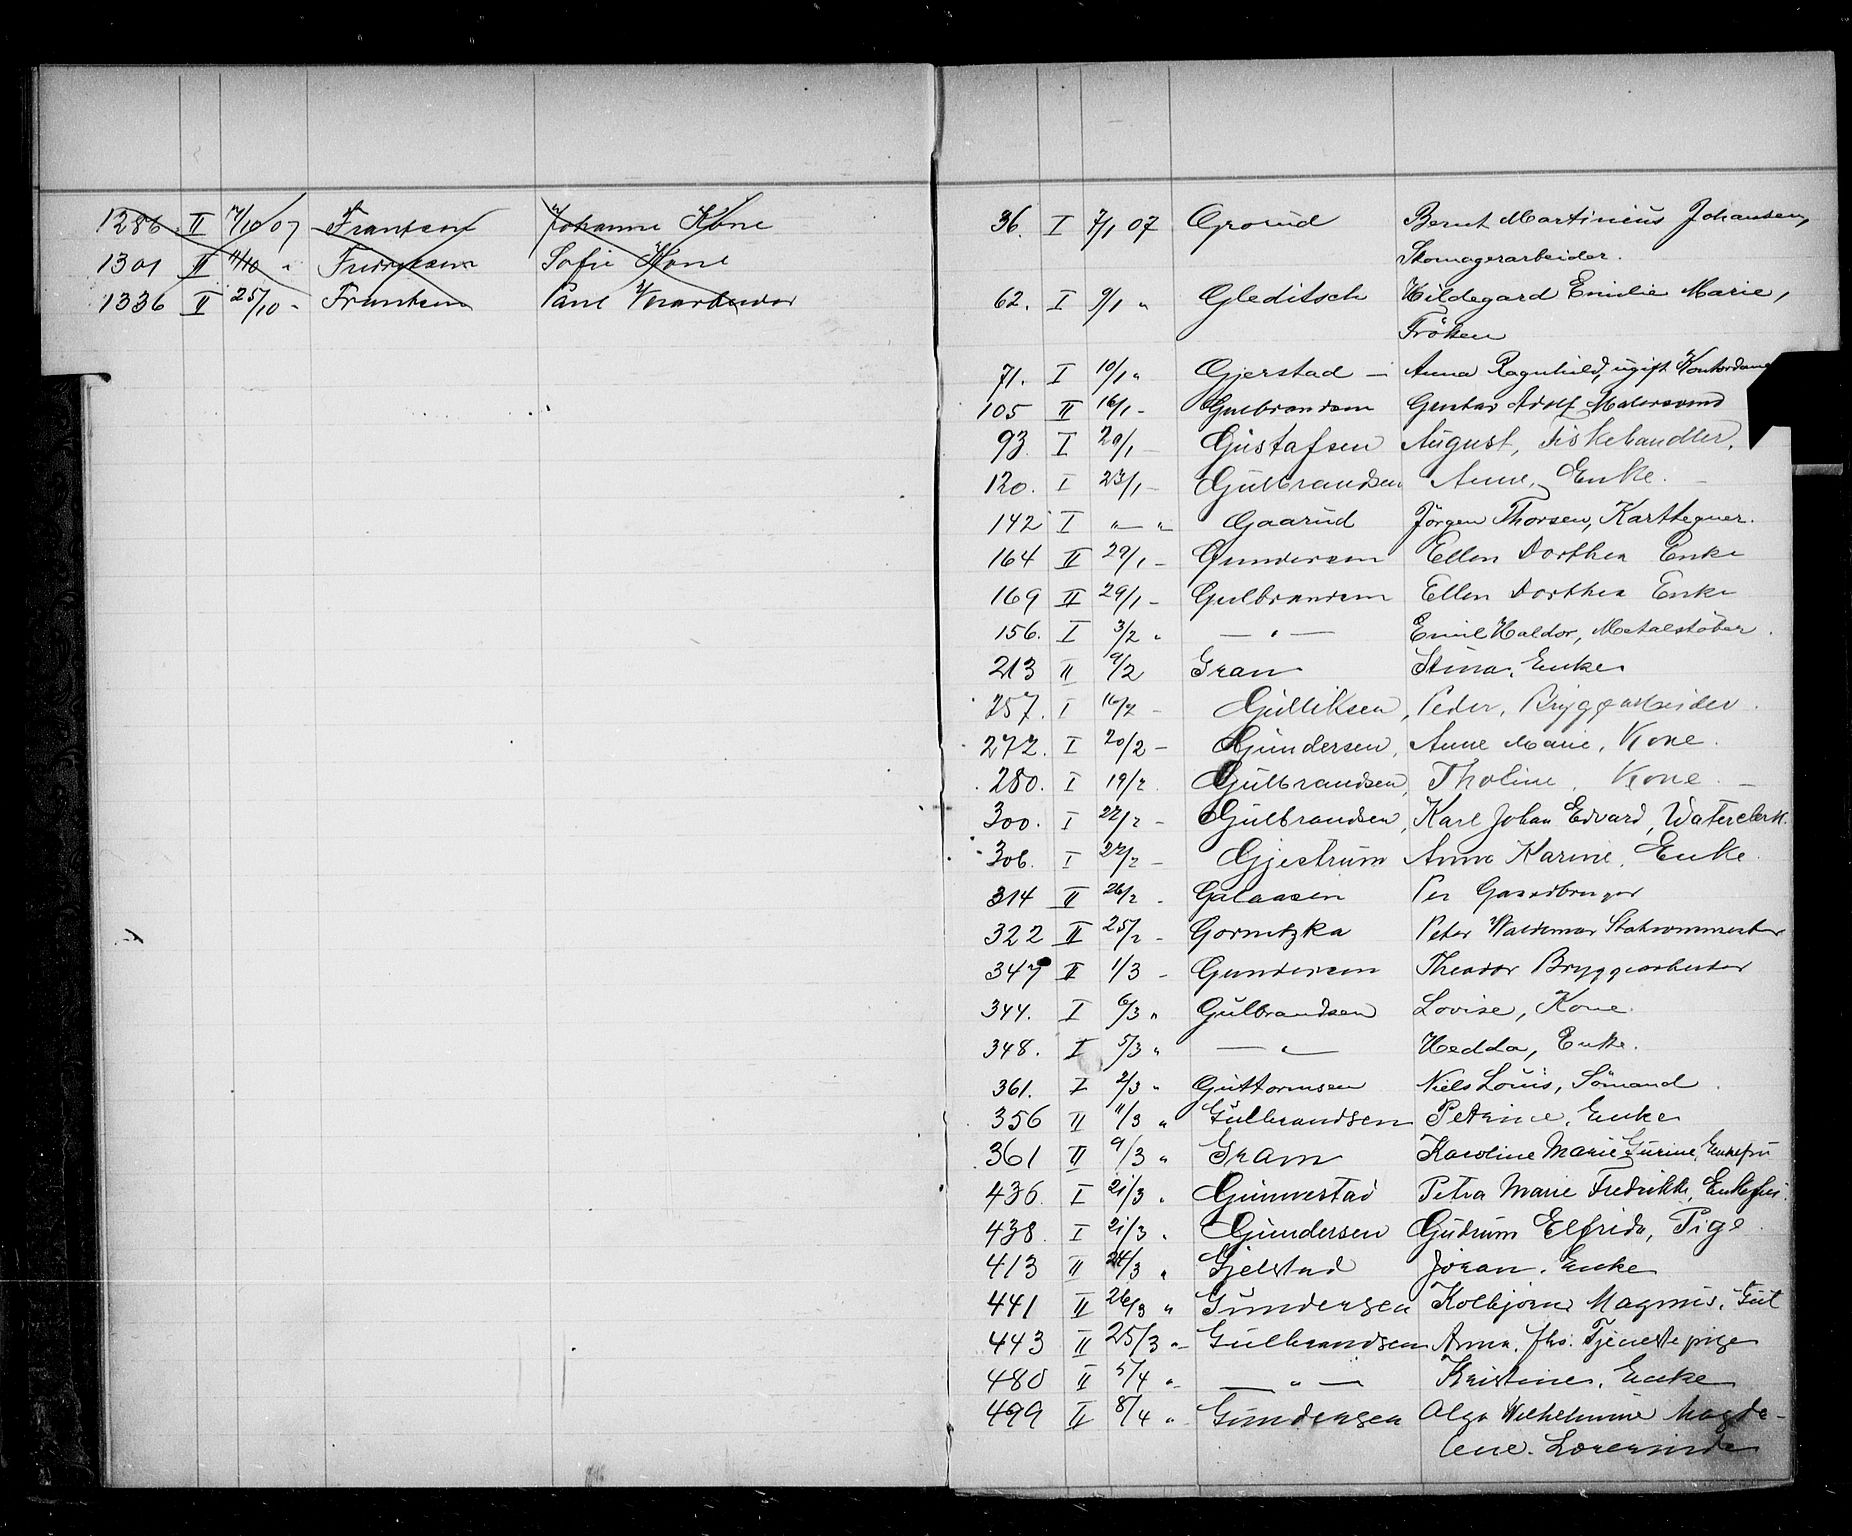 1286 II 7/10 07 Frantsen Johanne Kone
1301 II 11/10 " Fredriksen Sofie Kone
1336 II 25/10 - Frantsen Paul
36. I 7/1 07 Grorud Bernt Martinius Johansen,
Skomagerarbeider.
62. I 9/1 " Gleditsch Hildegard Emilie Marie,
Frøken
71. I 10/1 " Gjerstad — Anna Ragnhild, ugift Kontordame
105 II 16/1 - Gulbrandsen Gustav Adolf Malersvend
93. I 20/1 - Gustafsen August, Fiskehandler.
120. I 23/1 - Gulbrandsen Anne, Enke.
142 I " — " Gaarud Jørgen Thorsen, Karttegner.
164 II 29/1 - Gundersen Ellen Dorthea Enke
169 II 29/1 - Gulbrandsen Ellen Dorthea Enke
156. I 3/2 " — " — Emil Haldor, Metalstøber.
213 II 9/2 Gran Stina, Enke
257. I 16/2 - Gulliksen, Peder, Bryggearbeider.
272. I 20/2 - Gundersen, Anne Marie, Kone.
280. I 19/2. Gulbrandsen, Tholine, Kone —
300. I 22/2 - Gulbrandsen, Karl Johan Edvard, Waterclerk.
306. I 22/2 - Gjestrum Anne Karine, Enke.
314 II 26/2 - Galaasen Per Gaardbruger
322 II 25/2 - Gornitzka Peter Waldemar
347 II 1/3 - Gundersen Theodor Bryggearbeider
344. I 6/3 " Gulbrandsen Lovise, Kone.
348. I 5/3 " — " — Hedda, Enke.
361. I 2/3 " Guttormsen Niels Louis, Sømand.
356 II 11/3 " Gulbrandsen Petrine, Enke
361 II 9/3 " Gram Karoline Marie Gurine, Enkefru
436. I 21/3 " Gunnestad Petra Marie Fredrikke, Enkefru.
438. I 21/3 " Gundersen Gudrun Elfrida, Pige.
413 II 24/3 " Gjelstad Jøran, Enke
441 II 26/3 " Gundersen Kolbjørn Magnus, Gut
443 II 25/3 " Gulbrandsen Anna, fhv. Tjenestepige
480 II 5/4 " — " — Kristine, Enke
499 II 8/4 " Gundersen Olga Wilhelmine Magda-
lene. Lærerinde